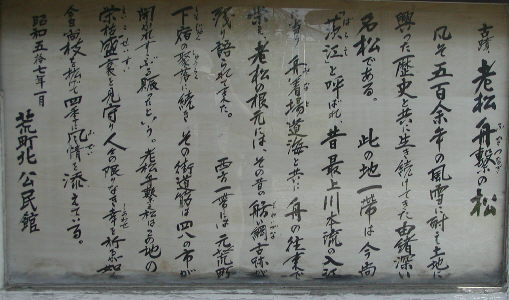 古蹟 老松 舟繋の松
凡そ五百余年の風雪に耐え土地に
興った歴史と共に生き続けてきた由緒深い
名松である。 此の地一帯は今尚
と呼ばれ、昔最上川本流の入江
舟着場 道海と共に 舟の往来で
栄え 老松の根元には、その昔の舫い綱
残り語られて来た。 雲一帯には元荒町
下宿の聚落に続き その街道筋は四八の市が
開かれすこぶる賑だと、う。老松舟繋の松はこの地の
栄枯盛衰を見守り 人の限りなき幸を祈るが如く
今日も枝を拡げて四季に風情を添えている。
昭和五拾七年一月
荒町北公民館